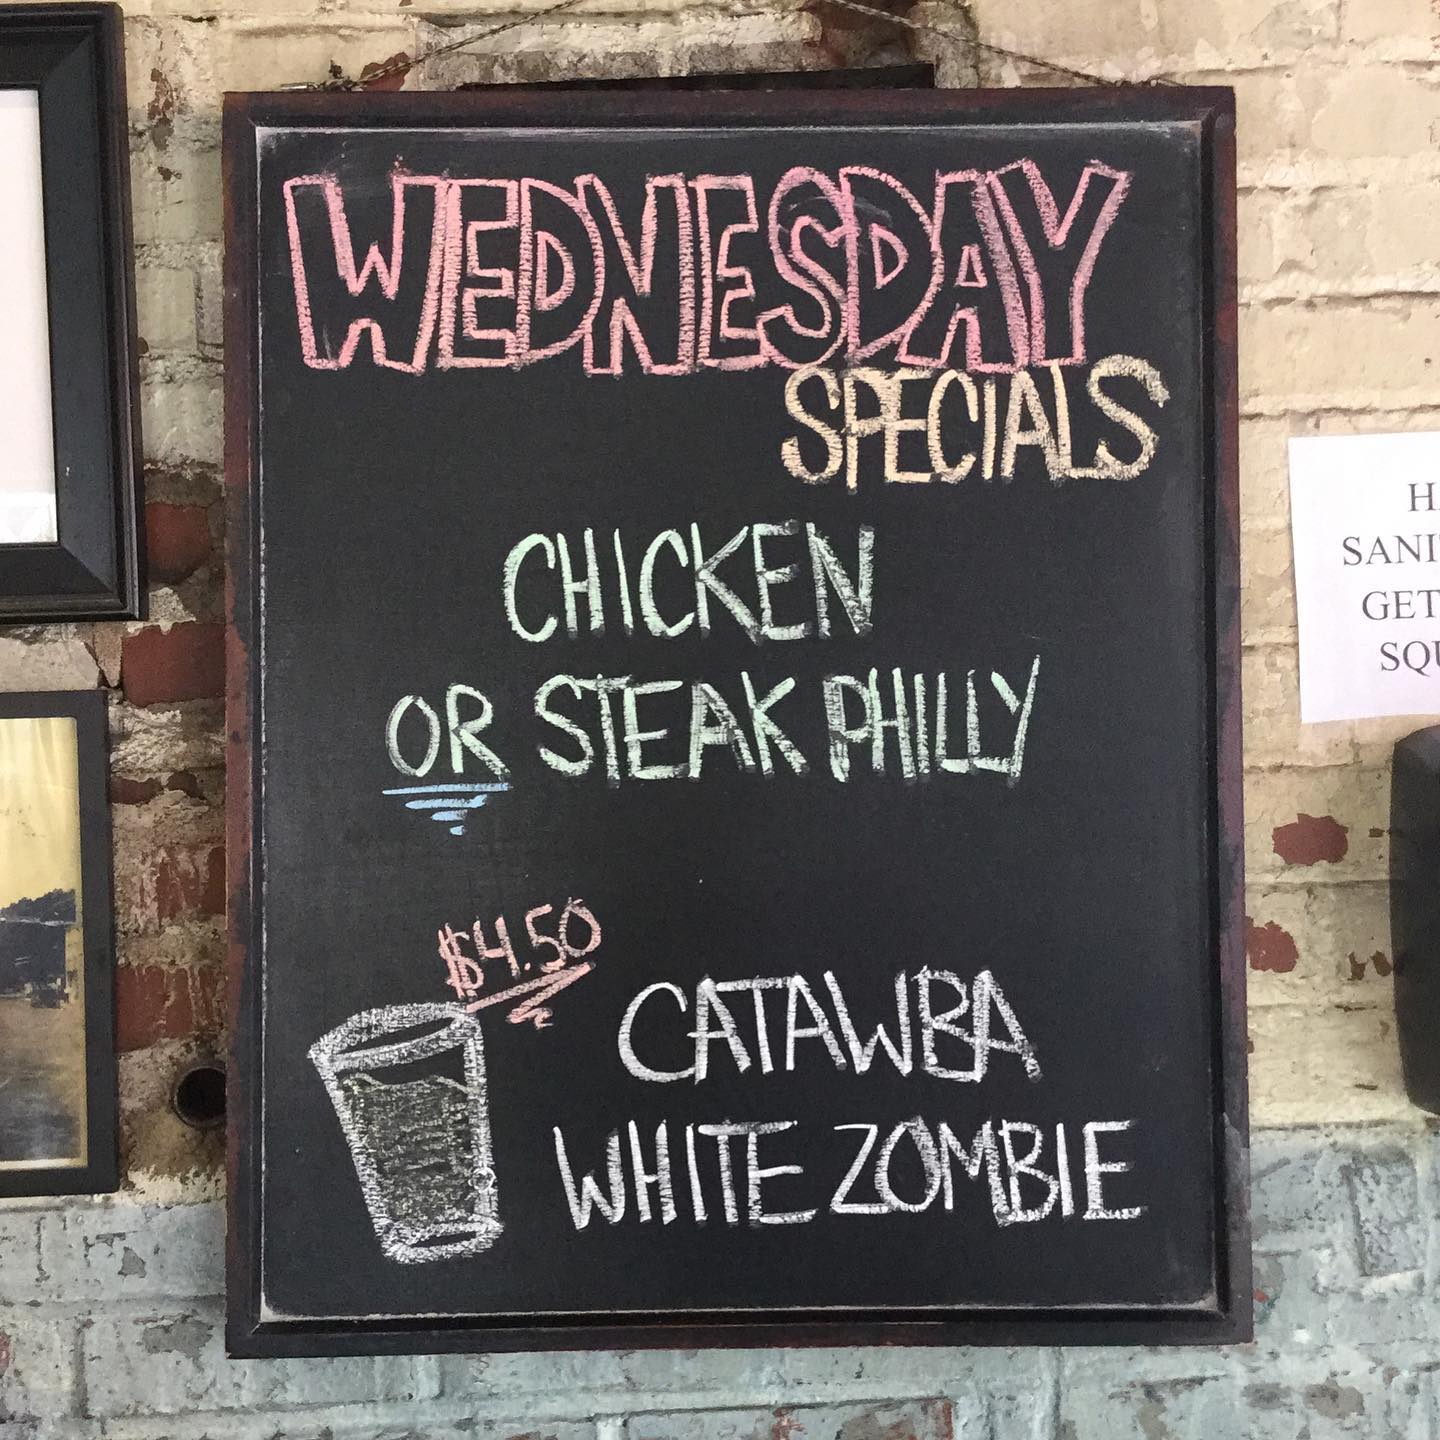 WEDNESDAY
SPECIALS
CHICKEN
OR STEAK PHILLY
$4.50
CATAWBA
WHITE ZOMBIE
GET